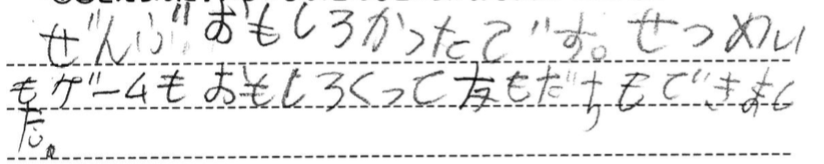 ぜんぶおもしろかったです。せつめい
もゲームもおもしろくって友もだちもできまし
た。